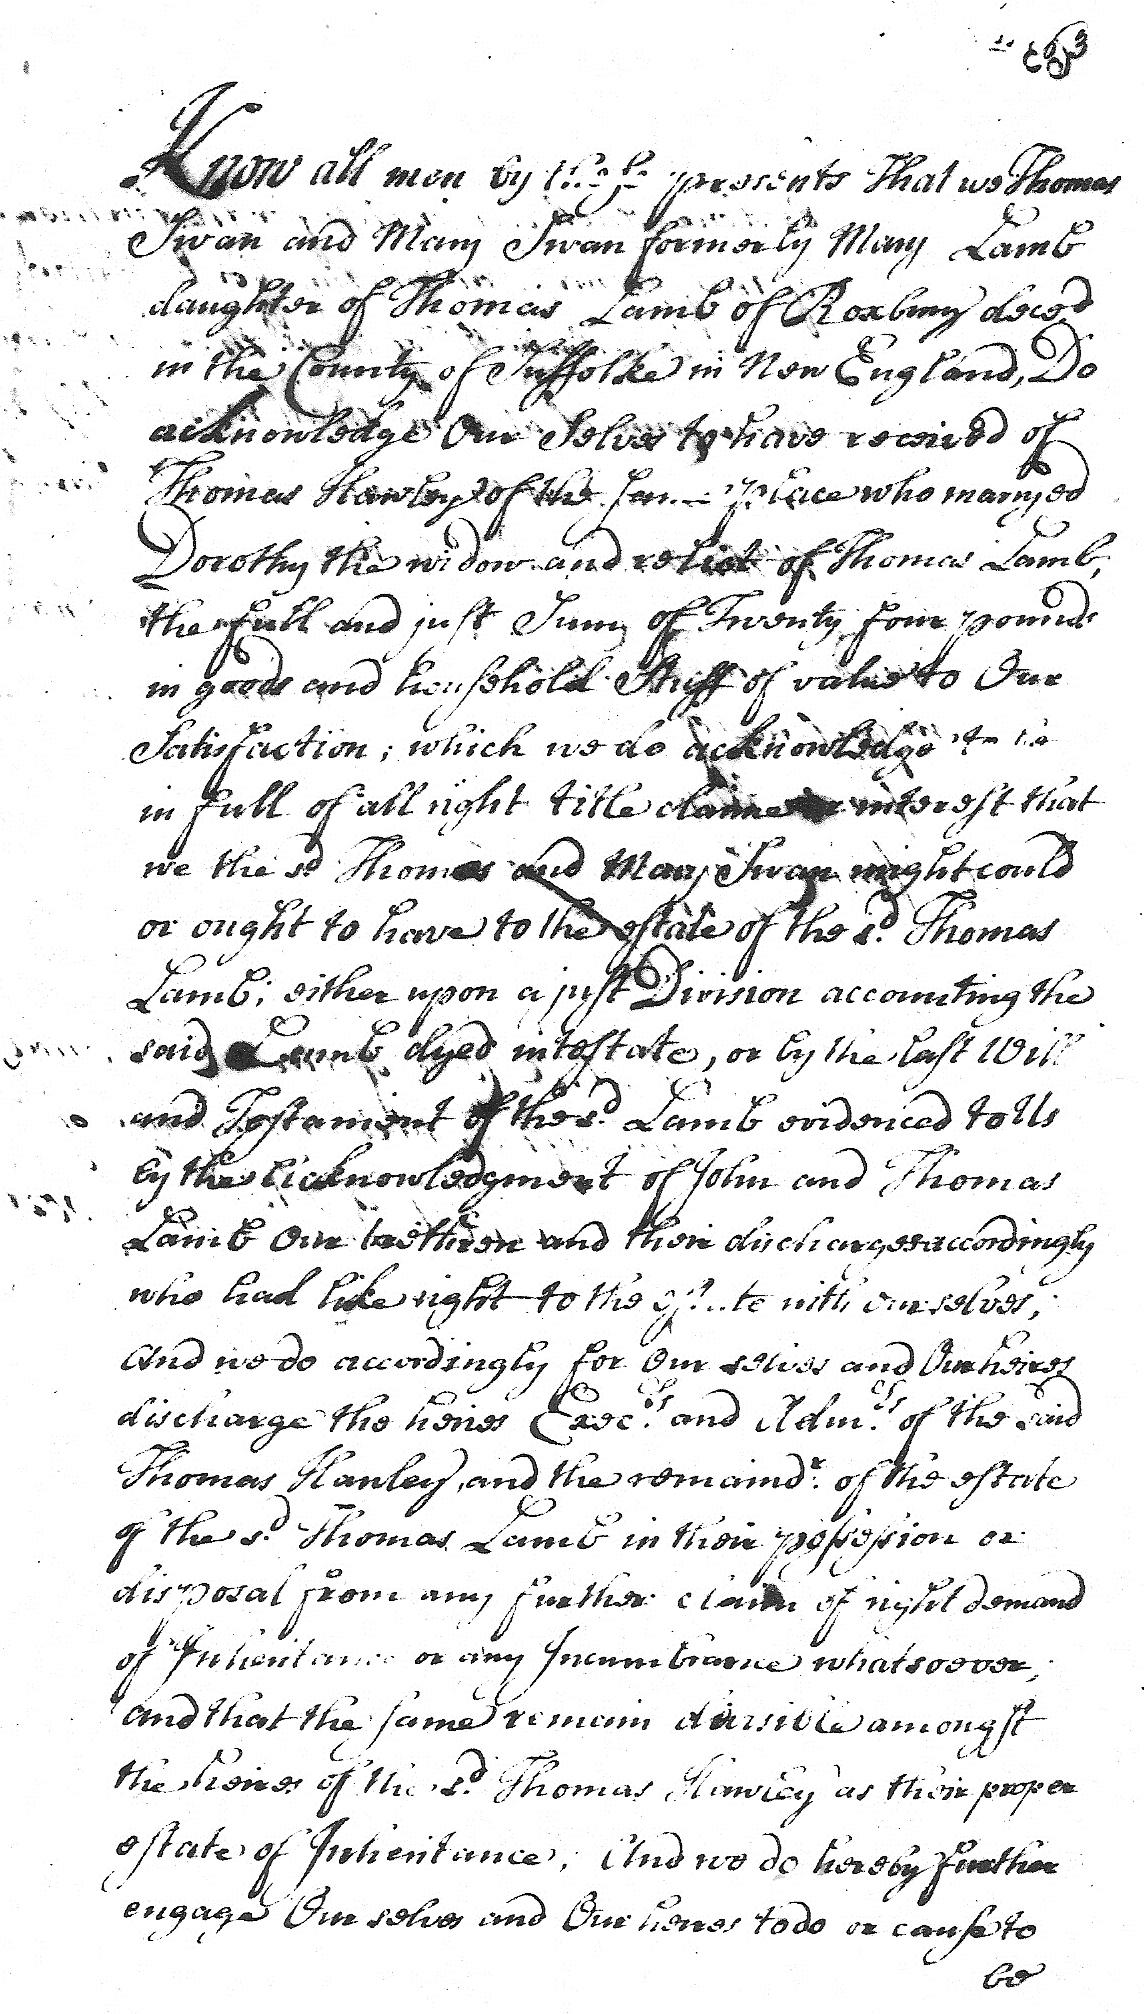 Know all men by these presents That we Thomas
Swan and Mary Swan formerly Mary Lamb
daughter of Thomas Lamb of Roxbury deced
in the County of Suffolke in New England, Do
acknowledge Our Selves to have received of
Thomas Hawley of the same place who marryed
Dorothy the widow and relict of Thomas Lamb,
the full and just Sum of Twenty four pounds
in goods and household Stuff of value to Our
Satisfaction; which we do acknowledge to be
in full of all right title claime or interest that
we the sd Thomas and Mary Swan might could
or ought to have to the estate of the sd. Thomas
Lamb; either upon a just Division accounting the
said Lamb dyed intestate, or by the last Will
and Testament of the sd. Lamb evidenced to Us
by the acknowledgment of John and Thomas
Lamb Our brethren and their discharges accordingly
who had like right to the estate with our selves;
And we do accordingly for Our selves and Our heires
discharge the heires Execrs. and Admrs. of the said
Thomas Hawley, and the remaindr. of the estate
of the sd. Thomas Lamb in their possession or
disposal from any further claim of right demand
of Inheritance or any Incumbrance whatsoever;
and that the same remain divisible amongst
the heires of the sd. Thomas Hawley as their proper
estate of Inheritance; And we do hereby further
engage Our selves and Our heires to do or cause to
be